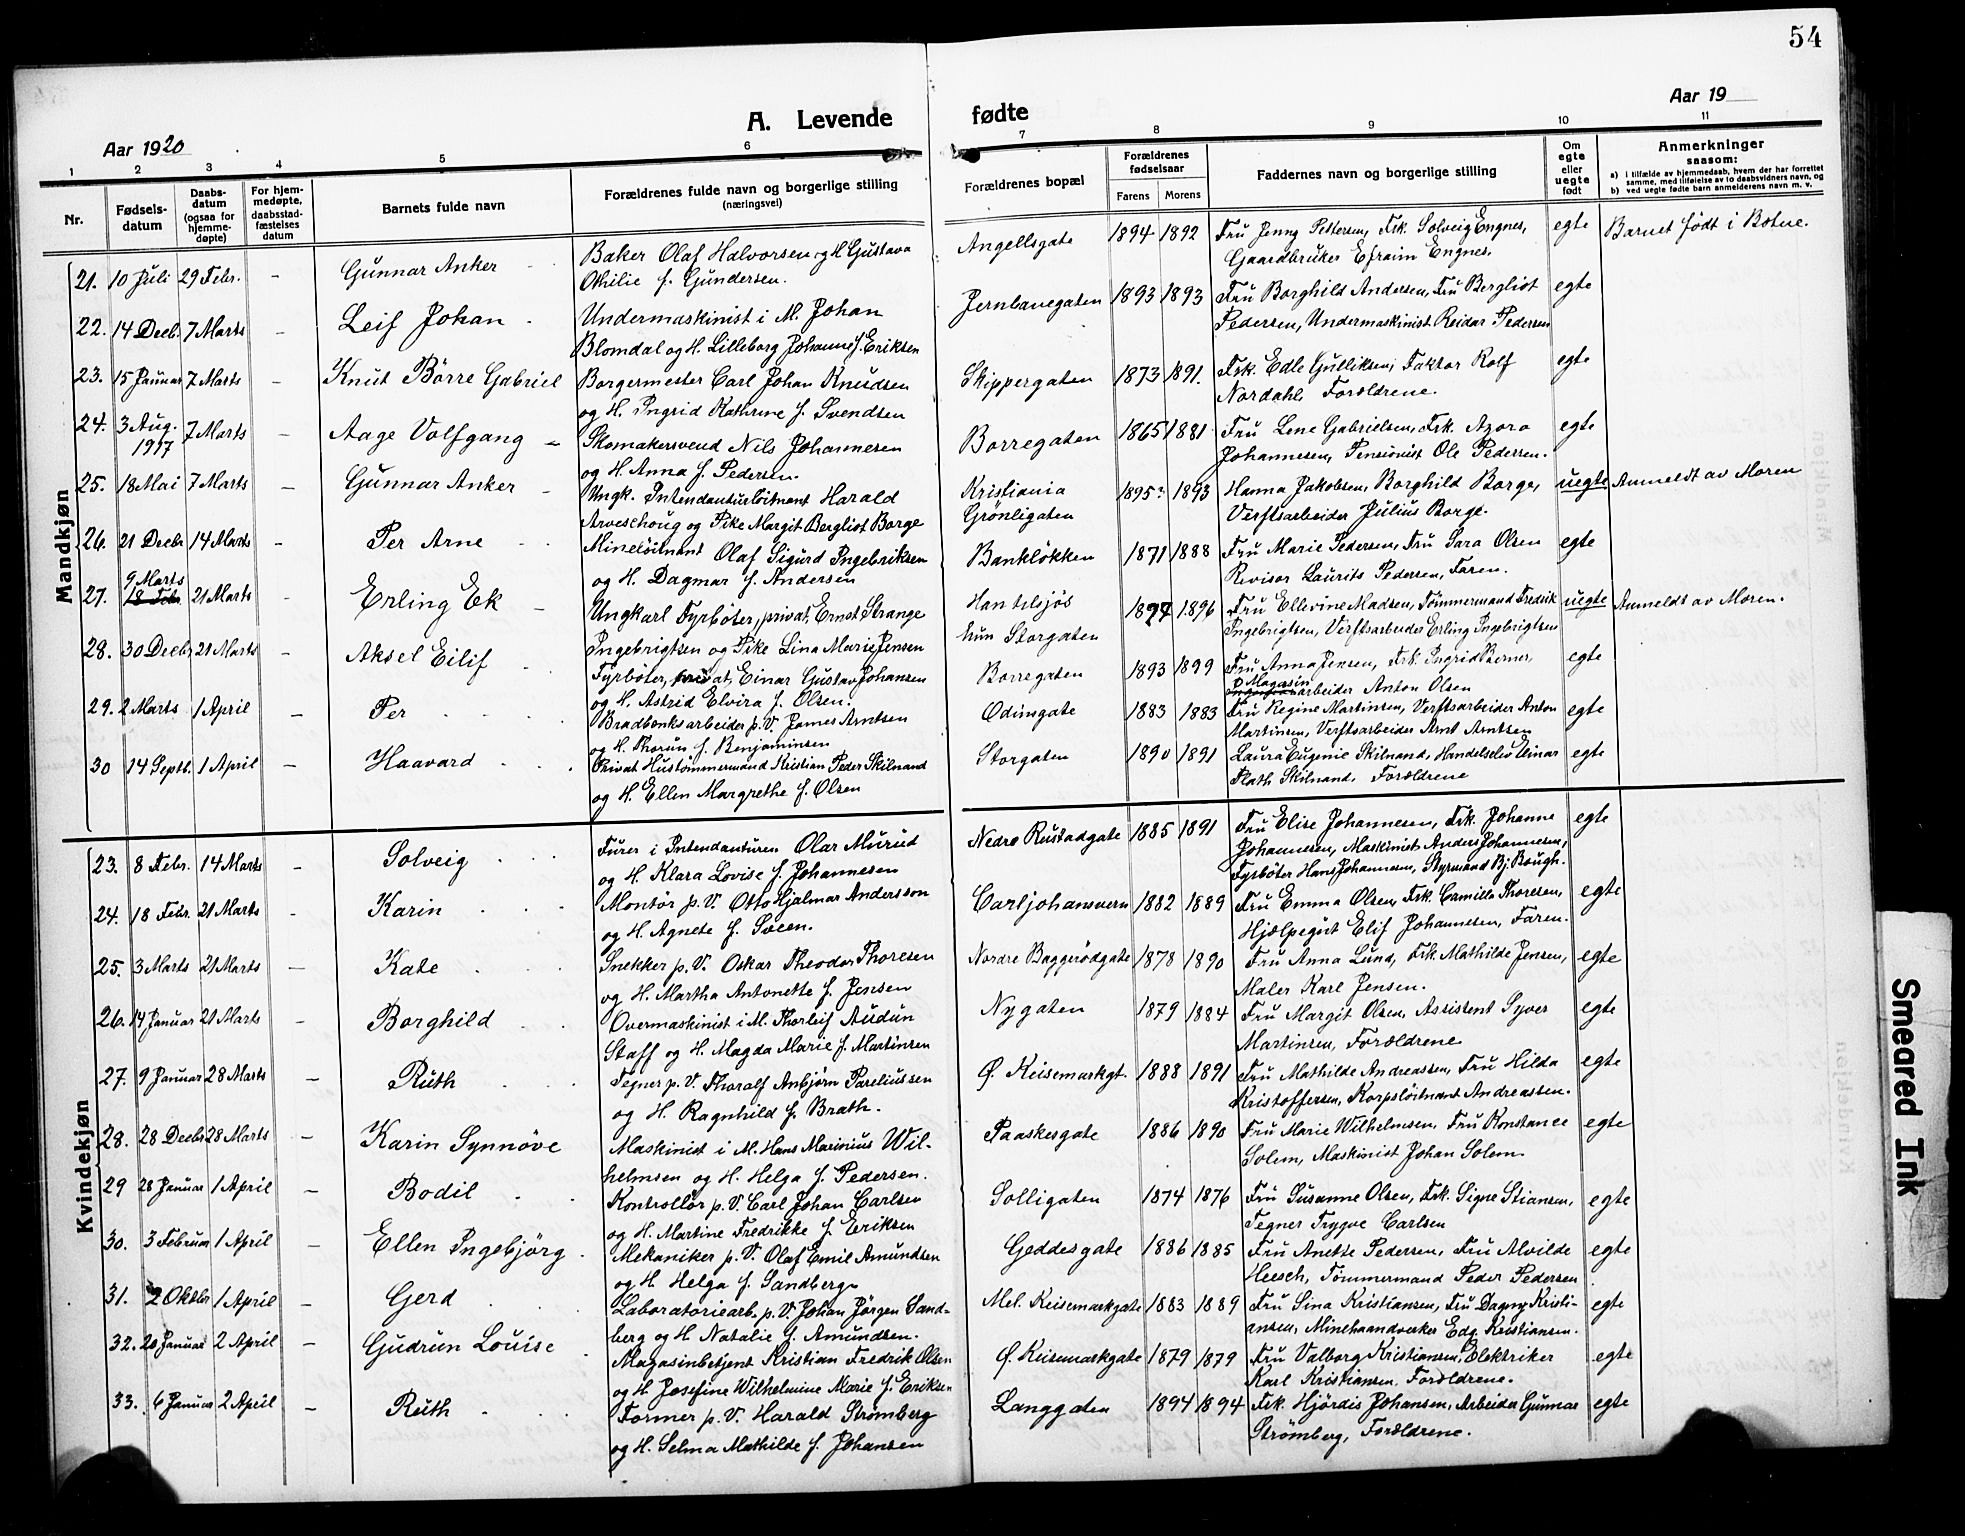 54
A. Levende fødte
Aar 1920
Aar 19
1 2 3 4 5 6 7 8 9 10 11
Nr.
Fødsels-
datum
Daabs-
datum
(ogsaa for
hjemme-
døpte)
For hjem-
medøpte,
daabsstad-
fæstelses
datum
Barnets fulde navn
Forældrenes fulde navn og borgerlige stilling
(næringsvei)
Forældrenes bopæl
Forældrenes
fødselsaar
Farens Morens
Faddernes navn og borgerlige stilling
Om
egte
eller
uegte
født
Anmerkninger
saasom:
a) i tilfælde av hjemmedaab, hvem der har forrettet
samme, med tilføielse av to daabsvidners navn, og
b) ved uegte fødte barn anmelderens navn m. v.
Mandkjøn
21. 10 Juli 29 Febr. - Gunnar Anker Baker Olaf Halvorsen og H Gustava Angellsgate 1894 1892 Fru Jenny Pettersen, Frk. Solveig Engnes, egte Barnet født i Botne.
Othilie f. Gundersen. Gaardbruker Efraim Engnes.
22. 14 Decb. 7 Marts - Leif Johan Undermaskinist i M. Johan Jernbanegaten 1893 1893 Fru Borghild Andersen, Fru Bergliot egte
Blomdal og H. Lilleborg Johanne f. Eriksen Pedersen, Undermaskinist Reidar Pedersen
23. 15 Januar 7 Marts - Knut Börre Gabriel Borgermester Carl Johan Knudsen Skippergaten 1873 1891. Frk. Edle Gulliksen, Faktor Rolf egte
og H. Ingrid Kathrine f. Svendsen Nordahl. Forældrene.
24. 3 Aug. 1917 7 Marts - Aage Volfgang Skomakersvend Nils Johannesen Borregaten 1865 1881 Fru Lene Gabrielsen, Frk. Azora egte
og H. Anna f. Pedersen Johannesen, Pensionist Ole Pedersen.
25. 18 Mai 7 Marts - Gunnar Anker Ungk. Intendanturløitnant Harald Kristiania 1895 1893 Hanna Jakobsen, Borghild Borge, uegte Anmeldt av Moren
Arveschoug og Pike Margit Bergliot Borge Grönligaten Verftsarbeider Julius Borge.
26. 21 Decbr 14 Marts - Per Arne Mineløitnant Olaf Sigurd Ingebriksen Bankløkken 1871 1888 Fru Marie Pedersen, Fru Sara Olsen egte
og H. Dagmar f. Andersen Revisor Laurits Pedersen, Faren.
27. 9 Marts 18 Feb. 21 Marts - Erling Ek Ungkarl Fyrbøter, privat, Ernst Strange Han tilsjøs 1894 1896 Fru Ellevine Madsen, Tømmermand Fredrik uegte Anmeldt av Moren.
Ingebrigtsen og Pike Lina Marie Jensen hun Storgaten Ingebrigtsen, Verftsarbeider Erling Ingebrigtsen
28. 30 Decbr 21 Marts - Aksel Eilif Fyrbøter, privat, Einar Gustav Johansen Borregaten 1893 1899 Fru Anna Jensen, Frk. Ingrid Berner, egte
og H. Astrid Elvira f. Olsen. Magasinarbeider Anton Olsen
29. 2 Marts 1 April - Per Brødbenksarbeider p. V. James Arntsen Odinsgate 1883 1883 Fru Regine Martinsen, Verftsarbeider Anton egte
og H. Thorun f. Benjaminsen Martinsen, Verftsarbeider Arnt Arntsen
30 14 Septb. 1 April - Haavard Privat Hustømmermand Kristian Peder Skilnand Storgaten 1890 1891 Laura Eugenie Skilnand, Handelselev Einar egte
og H. Ellen Margrethe f. Olsen Plath Skilnand, Forældrene
Kvindekjøn
23. 8 Febr. 14 Marts - Solveig Furer i Intendanturen Olar Murud Nedre Rustadgate 1885 1891 Fru Elise Johannesen, Frk. Johanne egte
og H. Klara Lovise f. Johannesen Johannesen, Maskinist Anders Johannesen,
Fyrbøter Hans Johannesen, Styrmand Bj. Bough.
24. 18 Febr. 21 Marts - Karin Montør p. V. Otto Hjalmar Andersson Carljohansvern 1882 1889 Fru Emma Olsen, Frk. Camilla Thoresen, egte
og H. Agnete f. Sveen. Hjælpegut Elif Johannesen, Faren.
25. 3 Marts 21 Marts - Kate Snekker p. V. Oskar Theodor Thoresen Nordre Baggerödgate 1878 1890 Fru Anna Lund, Frk. Mathilde Jensen, egte
og H. Martha Antonette f. Jensen Maler Karl Jensen.
26. 14 Januar 21 Marts - Borghild Overmaskinist i M. Thorleif Audun Nygaten 1879 1884 Fru Margit Olsen, Assistent Syver egte
Staff og H. Magda Marie f. Martinsen Martinsen, Forældrene
27. 9 Januar 28 Marts - Ruth Tegner p. V. Thoralf Anbjørn Pareliussen Ø. Keisemarkgt. 1888 1891 Fru Mathilde Andreassen, Fru Hilda egte
og H. Ragnhild f. Brath. Kristoffersen, Korpsløitnant Andreassen.
28. 28 Decbr 28 Marts - Karin Synnöve Maskinist i M. Hans Marinius Wil- Paaskesgate 1886 1890 Fru Marie Wilhelmsen, Fru Konstance egte
helmsen og H. Helga f. Pedersen. Solem, Maskinist Johan Solem
29 28 Januar 1 April - Bodil Kontrollör p. V. Carl Johan Carlsen Solligaten 1874 1876 Fru Susanne Olsen, Frk. Signe Stiansen, egte
og H. Martine Fredrikke f. Eriksen Tegner Trygve Carlsen
30. 3 Februar 1 April - Ellen Ingebjörg Mekaniker p. V. Olaf Emil Amundsen Geddesgate 1886 1885 Fru Anette Pedersen, Fru Alvilde egte
og H Helga f. Sandberg Heesch, Tømmermand Peder Pedersen
31. 2 Oktbr 1 April - Gerd Laboratoriearb. p. V. Johan Jörgen Sand- Mel. Keisemarkgate 1883 1889 Fru Sina Kristiansen, Fru Dagny Kristi- egte
berg og H Natalie f. Amundsen. ansen, Minehaandverker Edg. Kristiansen.
32. 20 Januar 2 April - Gudrun Louise Magasinbetjent Kristian Fredrik Olsen Ø. Keisemarkgate 1879 1879 Fru Valborg Kristiansen, Elektriker egte
og H Josefine Wilhelmine Marie f. Eriksen Karl Kristiansen, Forældrene.
33. 6 Januar 2 April - Ruth Former p. V. Harald Strømberg Langgaten 1894 1894 Frk. Hjördis Johansen, Arbeider Gunnar egte
og H. Selma Mathilde f. Johansen Strømberg, Forældrene.
Smeared Ink